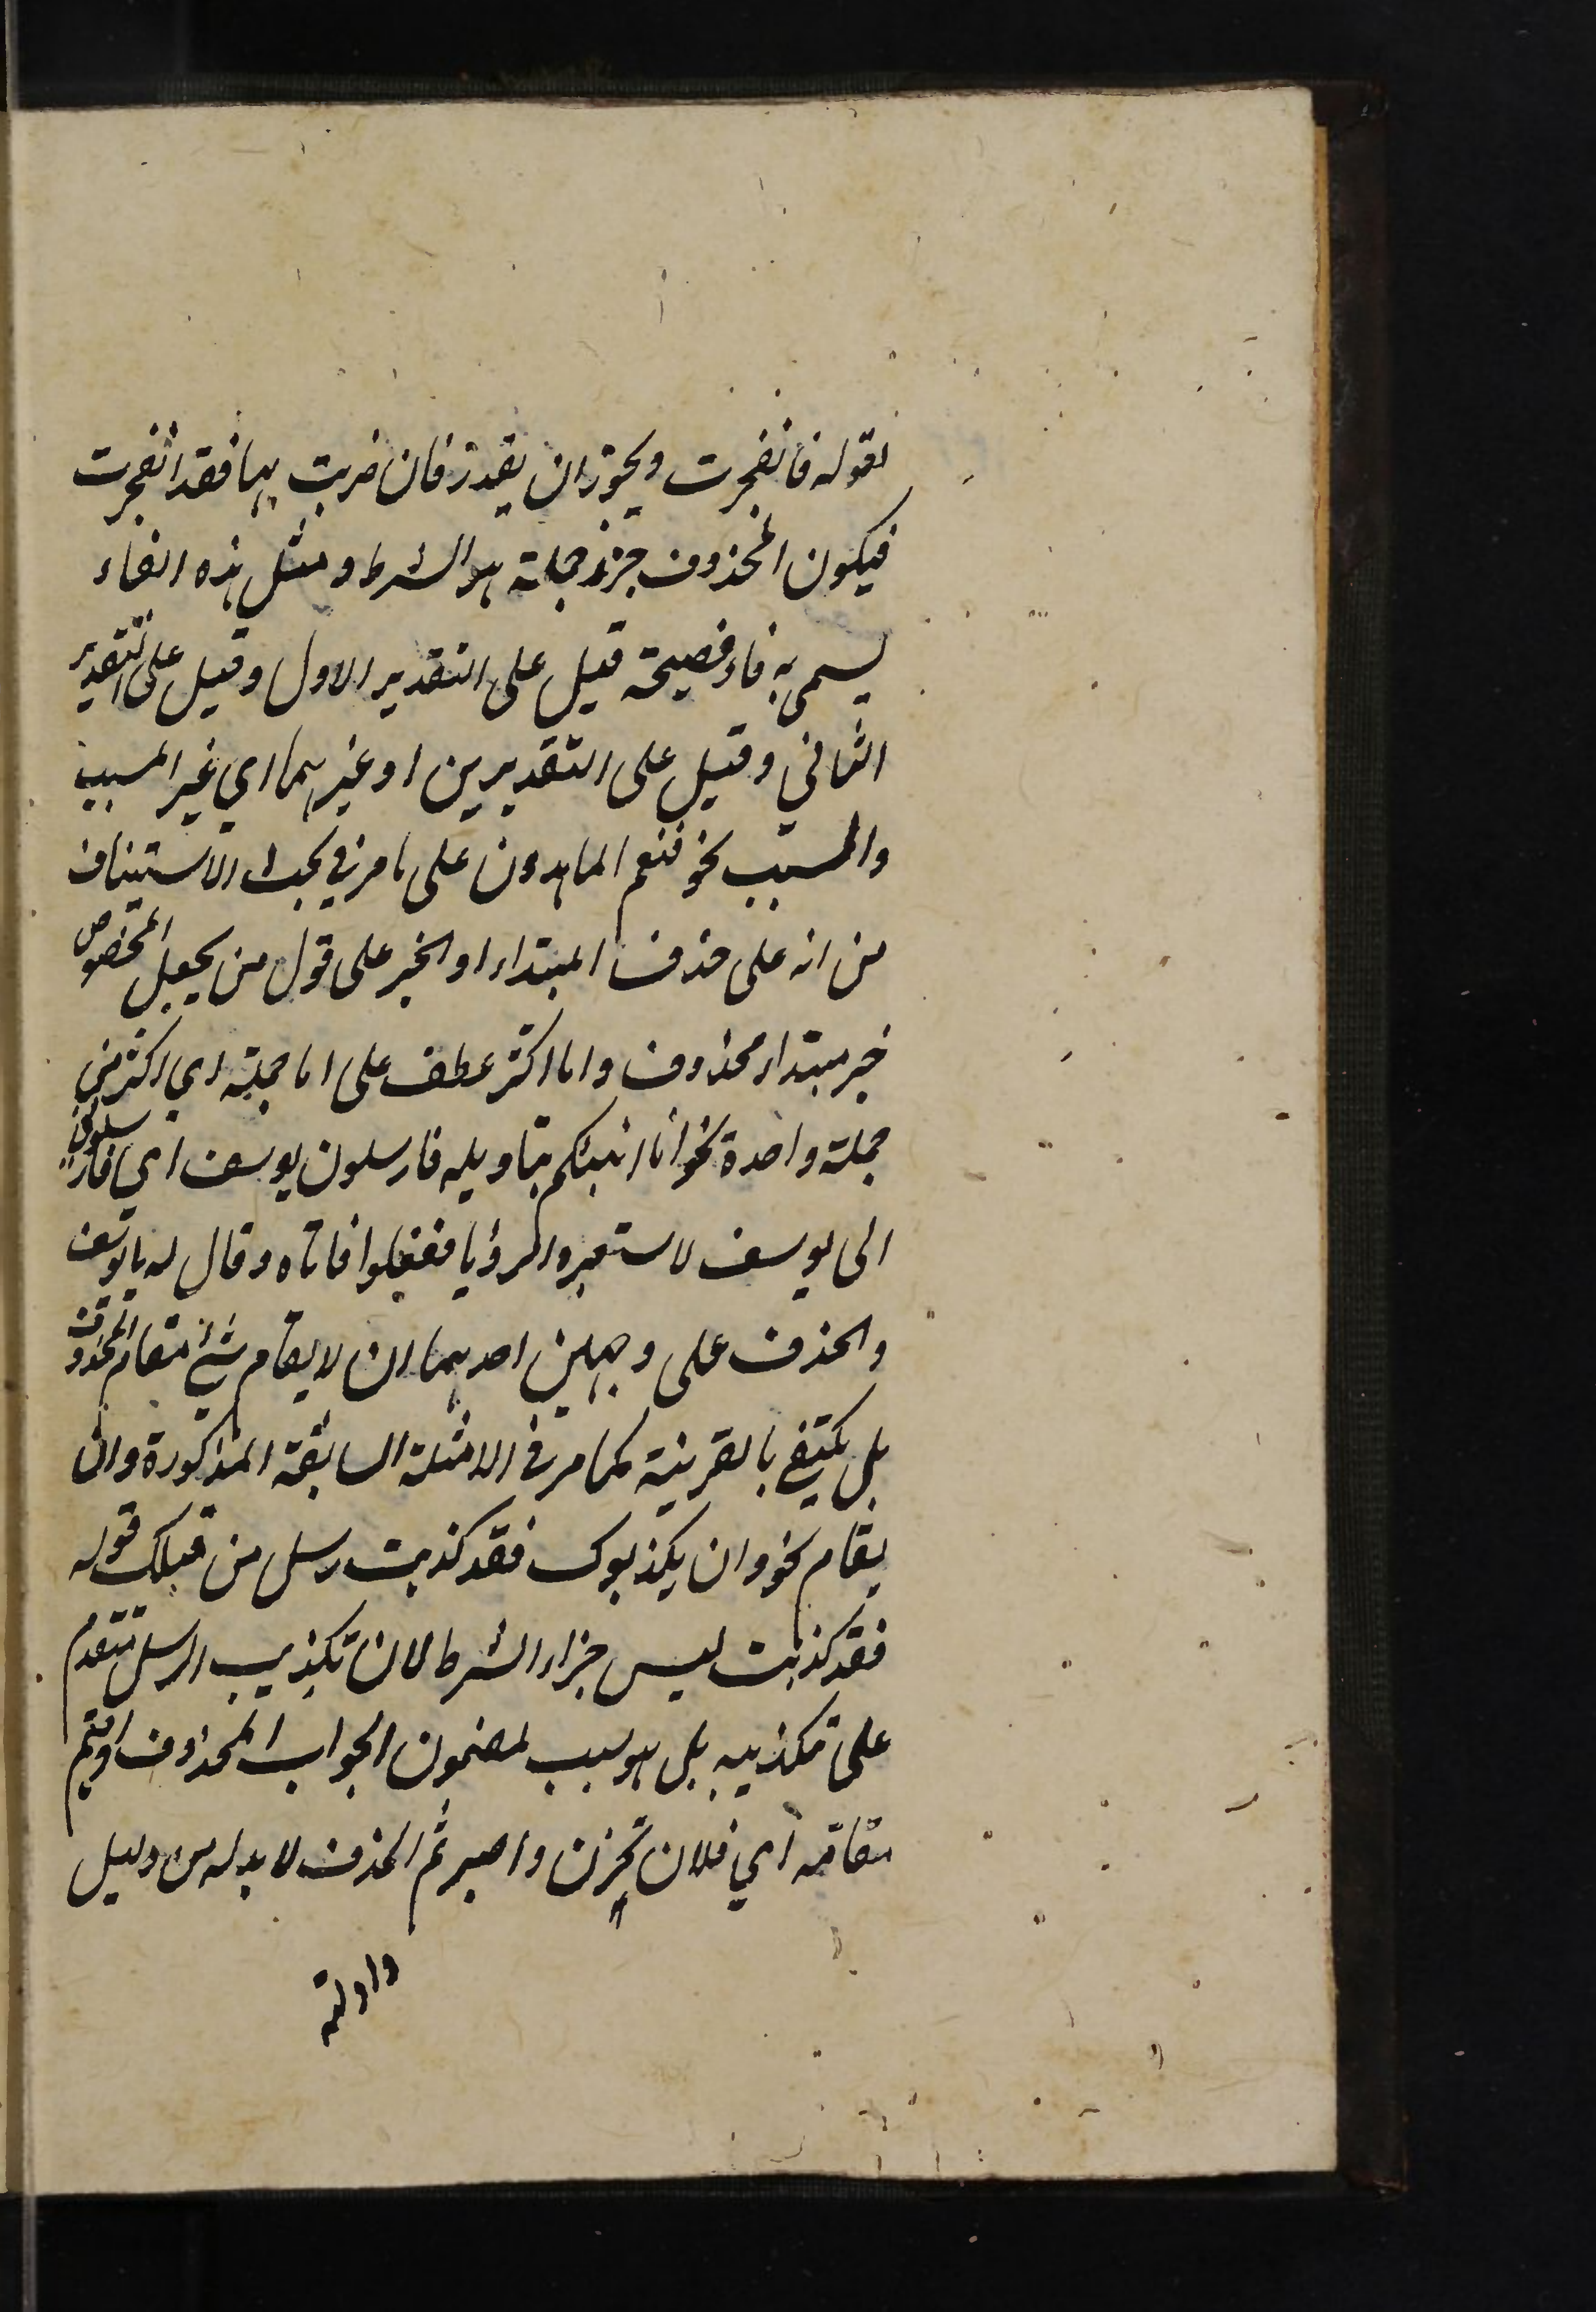 لقوله فانفجرت ويجوز ان يقدر فان ضربت بها فقد انفجرت
فيكون المحذوف جزء جملة هو الشرط ومثل هذه الفاء
يسمى به فاء فصيحة قيل على التقدير الاول وقيل على التقدير
الثاني وقيل على التقديرين او غيرهما اي غير المسبب
والمسبب نحو فنعم الماهدون على ما مر في بحث الاستيناف
من انه على حذف المبتداء او الخبر على قول من يجعل المخصوص
خبر مبتداء محذوف واما اكثر عطف على اما جملة اي اكثر من
جملة واحدة نحو انا انبئكم بتاويله فارسلون يوسف اي فارسلوني
الى يوسف لاستعبره الرؤيا ففعلوا فاتاه وقال له يا يوسف
والحذف على وجهين احدهما ان لا يقام شئ مقام المحذوف
بل يكتفي بالقرينة كما مر في الامثلة السابقة المذكورة وان
يقام نحو وان يكذبوك فقد كذبت رسل من قبلك قوله
فقد كذبت ليس جزاء الشرط لان تكذيب الرسل متقدم
على تكذيبه بل هو سبب لمضمون الجواب المحذوف اقيم
مقامه اي فلان تحزن واصبر ثم الحذف لا بد له من دليل
وادلته